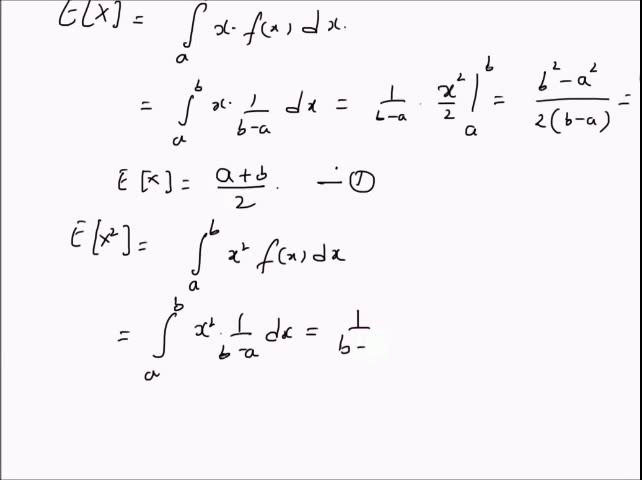 E[X] = ∫ₐ x. f(x) dx.
= ∫ₐᵇ x. 1/(b-a) dx = 1/(b-a) . x²/2 |ₐᵇ = (b²-a²)/(2(b-a)) =
E[x] = (a+b)/2. — ①
E[x²] = ∫ₐᵇ x² f(x) dx
= ∫ₐᵇ x². 1/(b-a) dx = 1/(b-